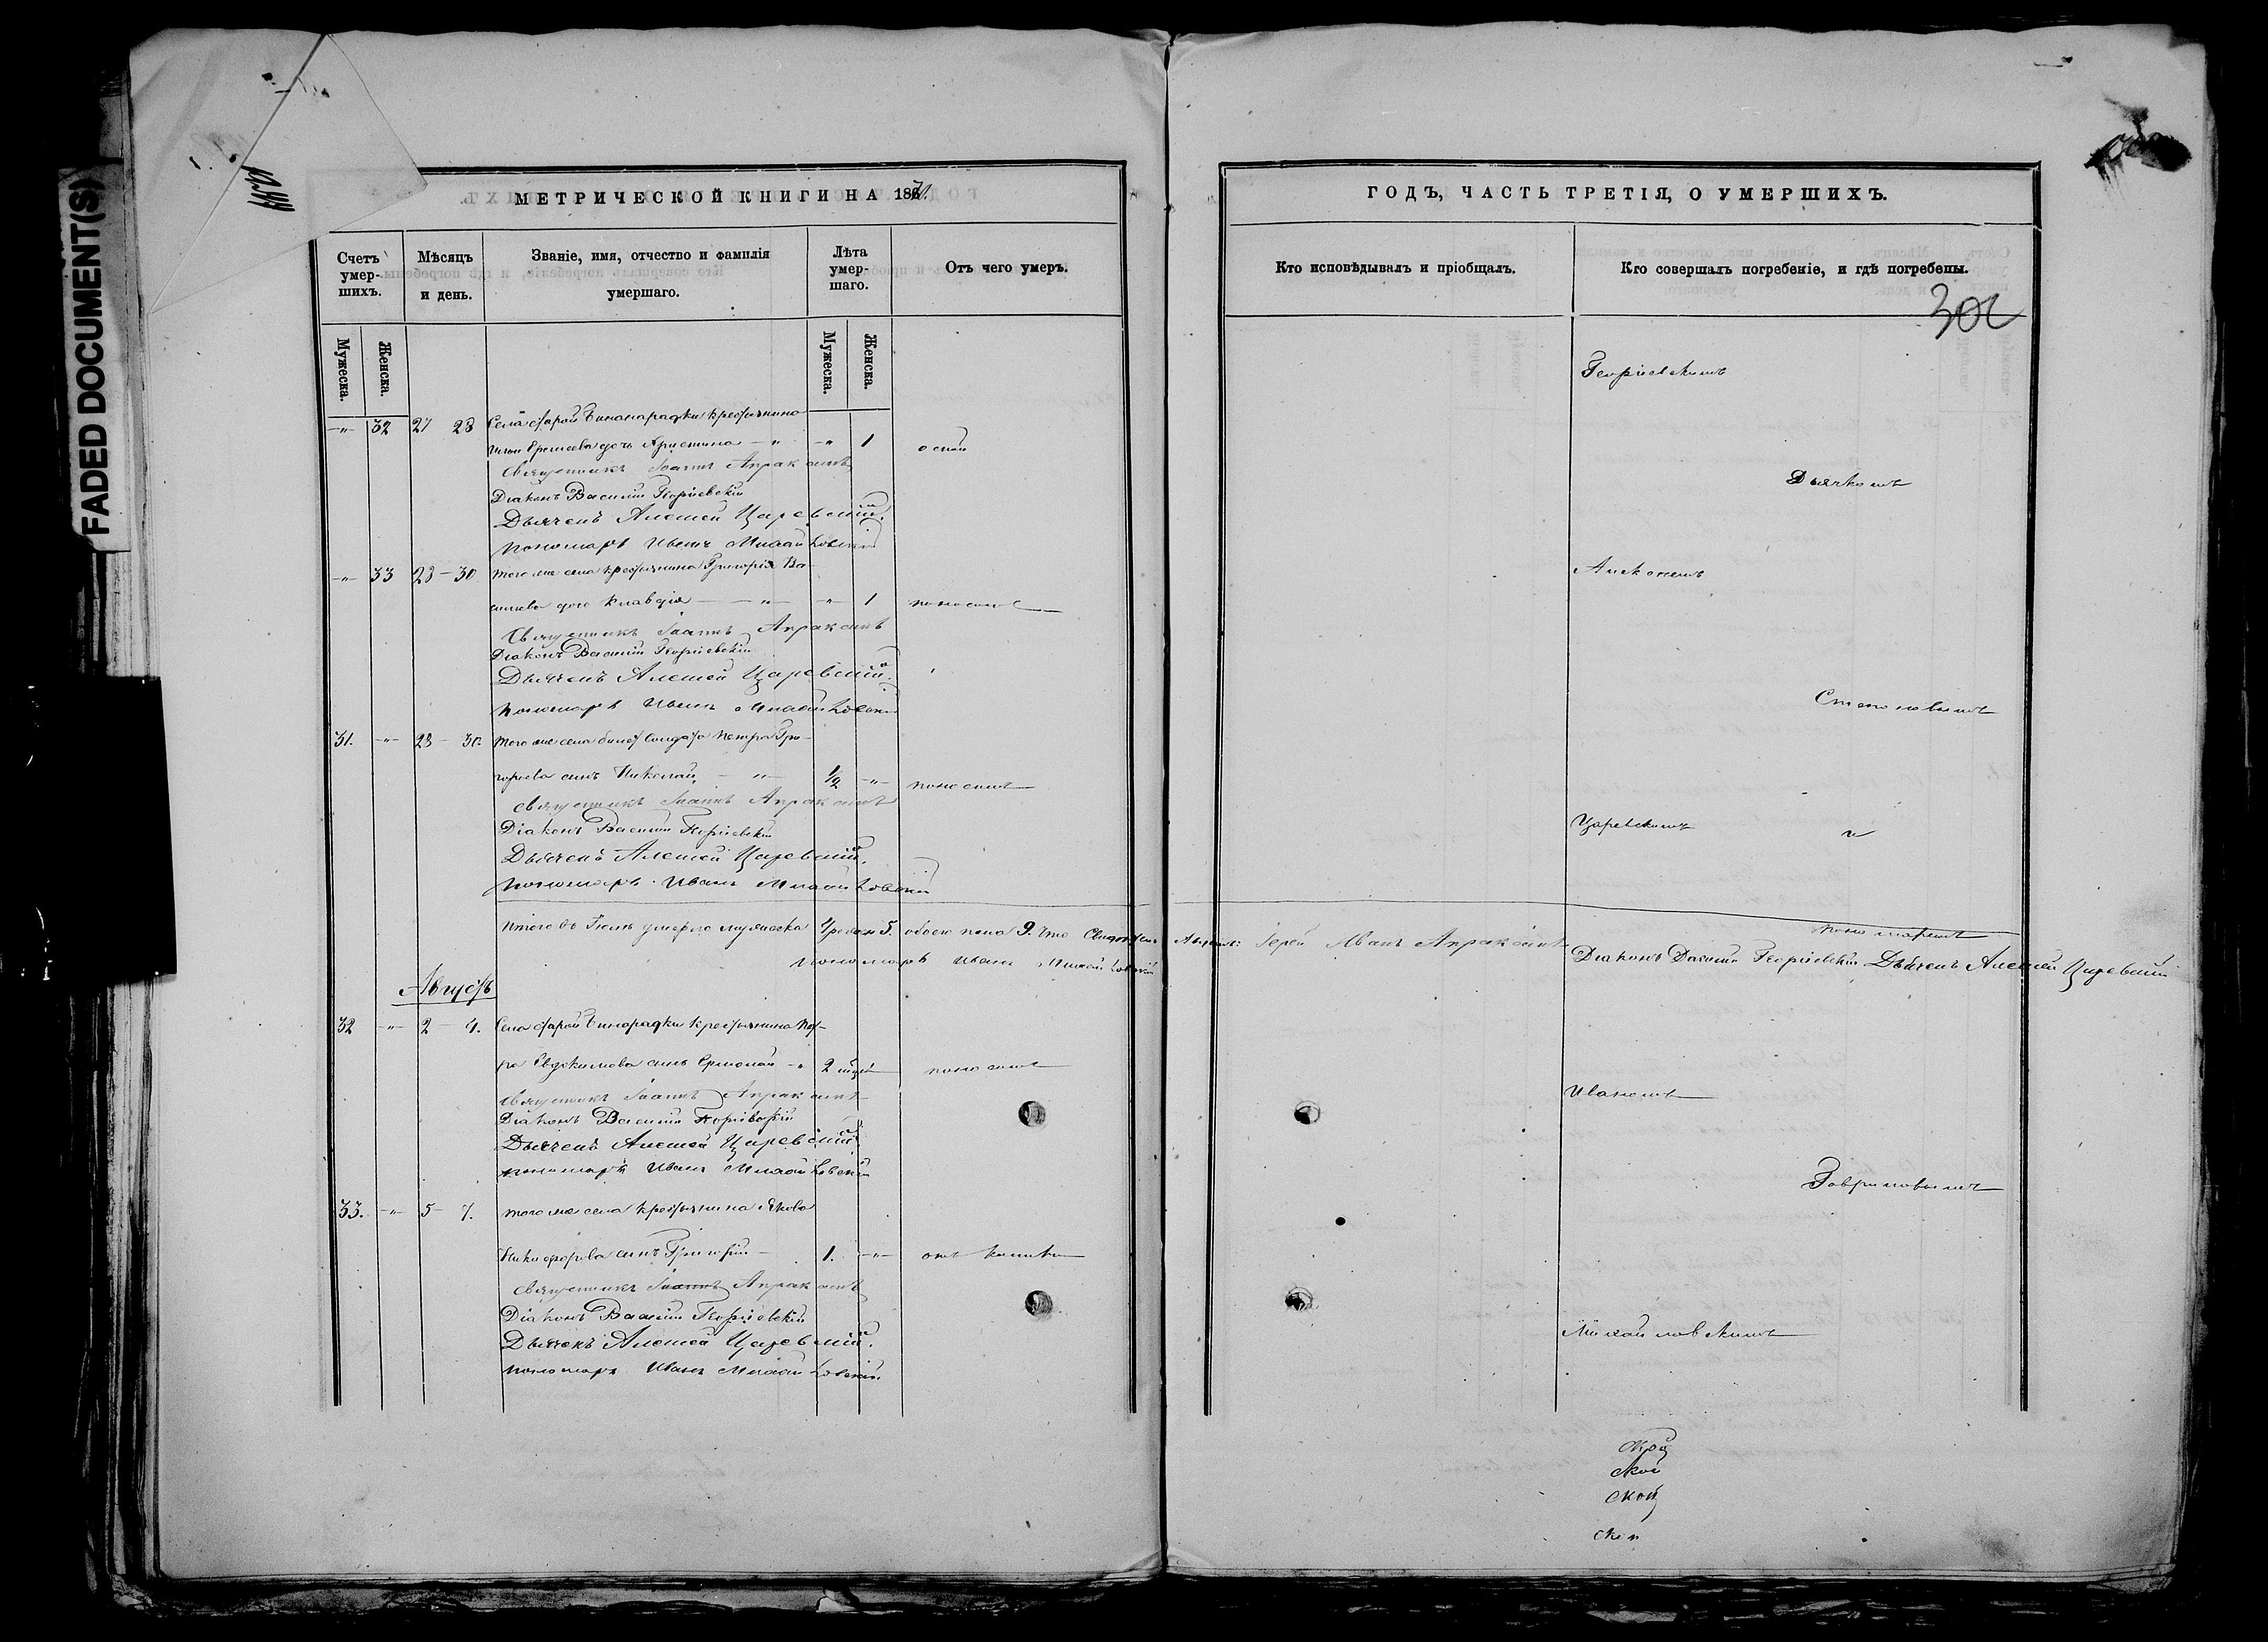 FADED DOCUMENT(S)
МЕТРИЧЕСКОЙ КНИГИ НА 1871.
Счетъ умер-шихъ.
Мѣсяцъ и день.
Званіе, имя, отчество и фамилія умершаго.
Лѣта умер-шаго.
Отъ чего умеръ.
Мужеска.
Женска.
Мужеска.
Женска.
-"- 32 27 28 Села старой Бинарадки крестьянина
дочь Христина -"- -"- 1
Священникъ Іоаннъ Апраксинъ
Діаконъ Василій Георгіевскій
Дьячекъ Алексей Царевскій.
Пономарь Иванъ Михайловскій
-"- 33 28 - 30 того же села крестьянина Григорія Ва-
сильева дочь Клавдія -"- -"- 1 поносомъ
Священникъ Іоаннъ Апраксинъ
Діаконъ Василій Георгіевскій
Дьячекъ Алексей Царевскій.
Пономарь Иванъ Михайловскій
31. -"- 28 - 30. того же села билет солдата Петра Гри-
горьева сынъ Николай -"- 1/2 -"- поносомъ
Священникъ Іоаннъ Апраксинъ
Діаконъ Василій Георгіевскій
Дьячекъ Алексей Царевскій.
Пономарь Иванъ Михайловскій
Итого въ Іюлѣ умерло мужеска 4 5. обоего пола 9. Что
Пономарь Иванъ Михайловскій
Августъ
32 -"- 2 - 4. Села старой Бинарадки крестьянина Пет-
ра Евдокимова сынъ Ермолай -"- 2 поносомъ
Священникъ Іоаннъ Апраксинъ
Діаконъ Василій Георгіевскій
Дьячекъ Алексей Царевскій
Пономарь Иванъ Михайловскій
33. -"- 5 - 7. того же села крестьянина Якова
Никифорова сынъ Григорій - 1. -"- отъ
Священникъ Іоаннъ Апраксинъ
Діаконъ Василій Георгіевскій
Дьячекъ Алексей Царевскій.
Пономарь Иванъ Михайловскій
ГОДЪ, ЧАСТЬ ТРЕТІЯ, О УМЕРШИХЪ.
Кто исповѣдывалъ и пріобщалъ.
Кто совершалъ погребеніе, и гдѣ погребены.
Георгіевскимъ
Дьячкомъ
Алексеемъ
Царевскимъ и
пономаремъ
Іерей Иванъ Апраксинъ
Діаконъ Василій Георгіевскій Дьячекъ Алексей Царевскій
Иваномъ
Гавриловымъ
Михайловскимъ
ской
ской
ской